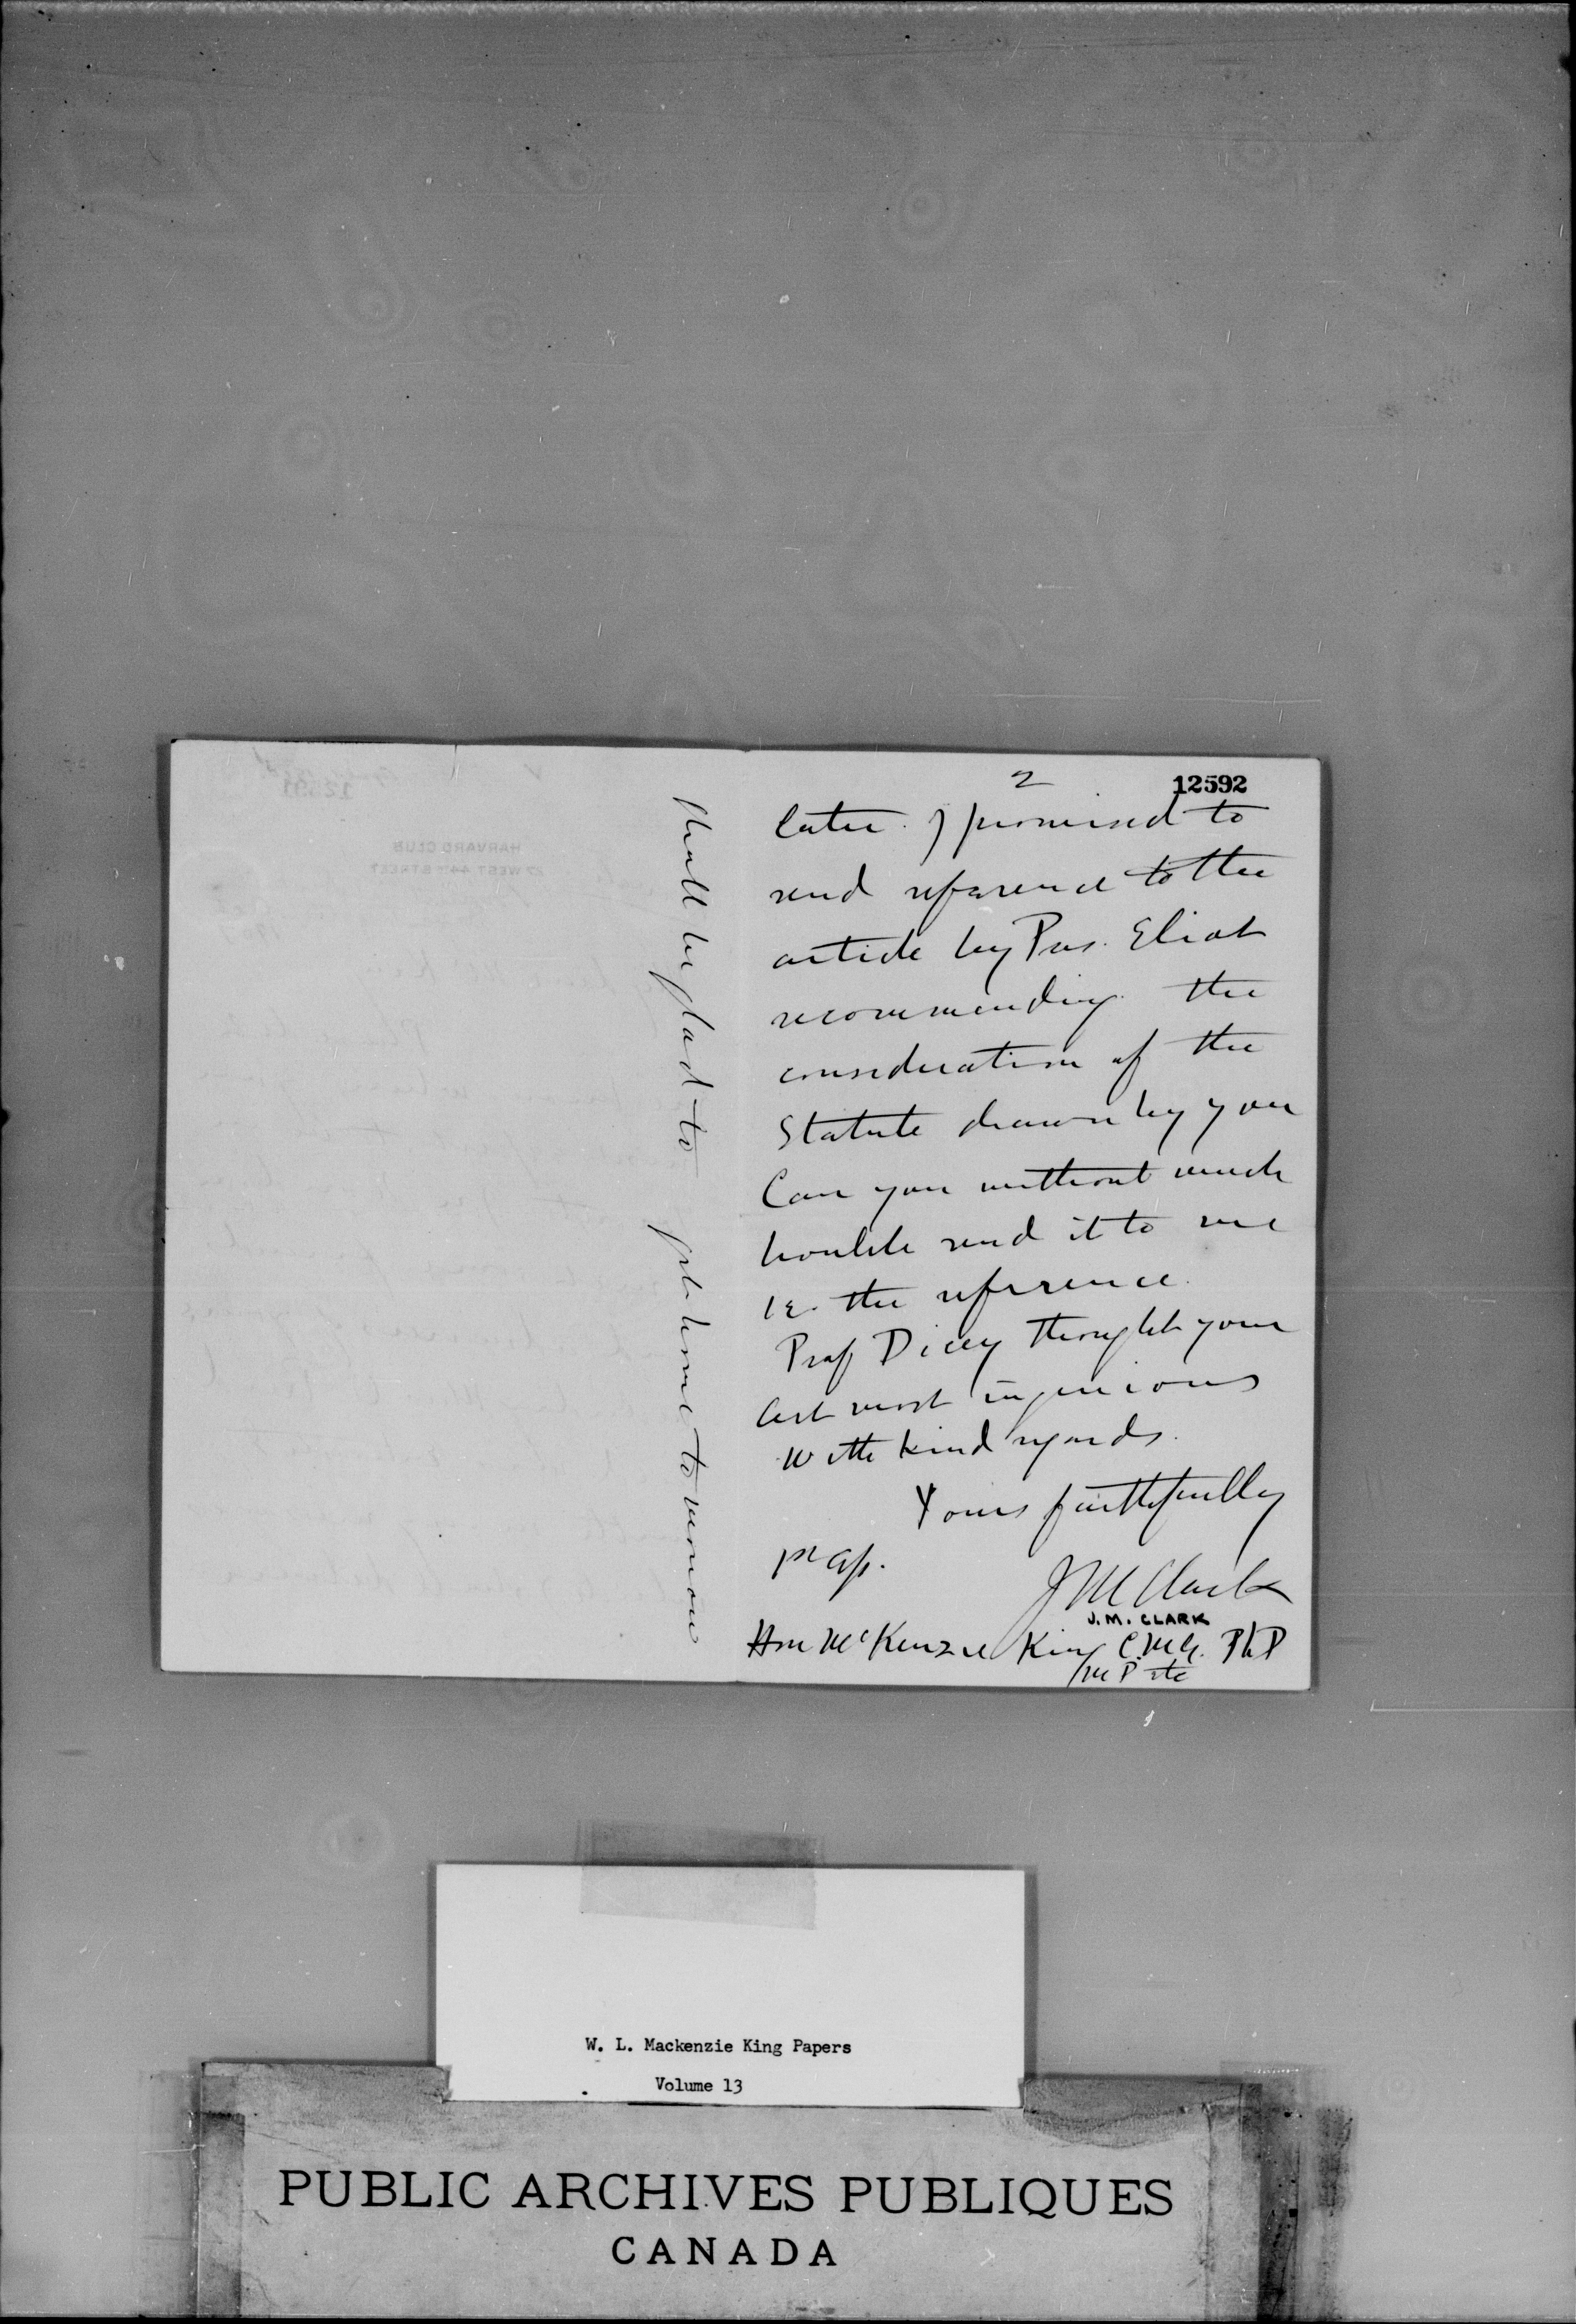 2
12592
later. I promised to
send reference to the
article by Pres. Eliot
recommending the
consideration of the
Statute drawn by you
Can you without much
trouble send it to me
ie. the reference.
Prof Dicey thought your
Act most ingenious
With kind regards.
Yours faithfully
J M Clark
J.M. CLARK
Hon McKenzie King C.M.G. PhD
M P etc
shall be glad to get home to morrow
HARVARD CLUB
27 WEST 44TH STREET
12591
W. L. Mackenzie King Papers
Volume 13
PUBLIC ARCHIVES PUBLIQUES
CANADA